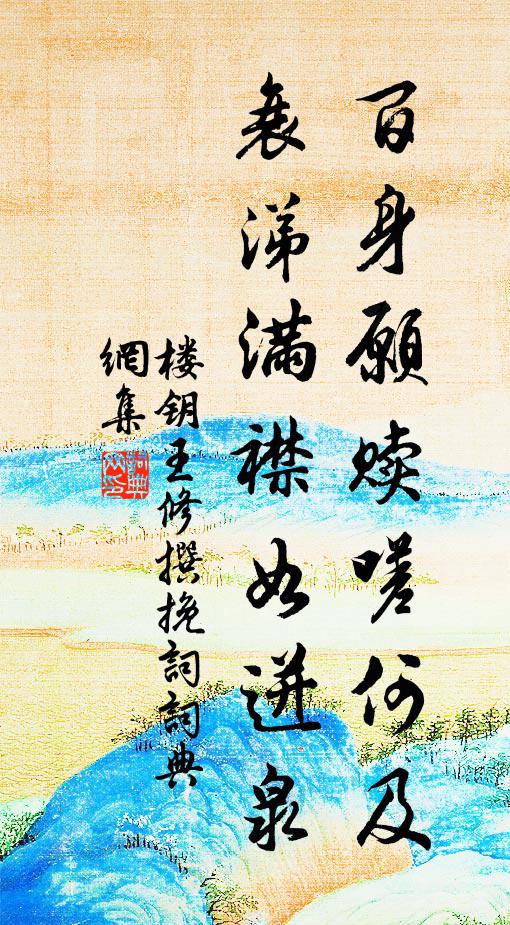 百身愿赎嗟何及
衰涕满襟如迸泉
楼钥王修撰挽词詞典
網集